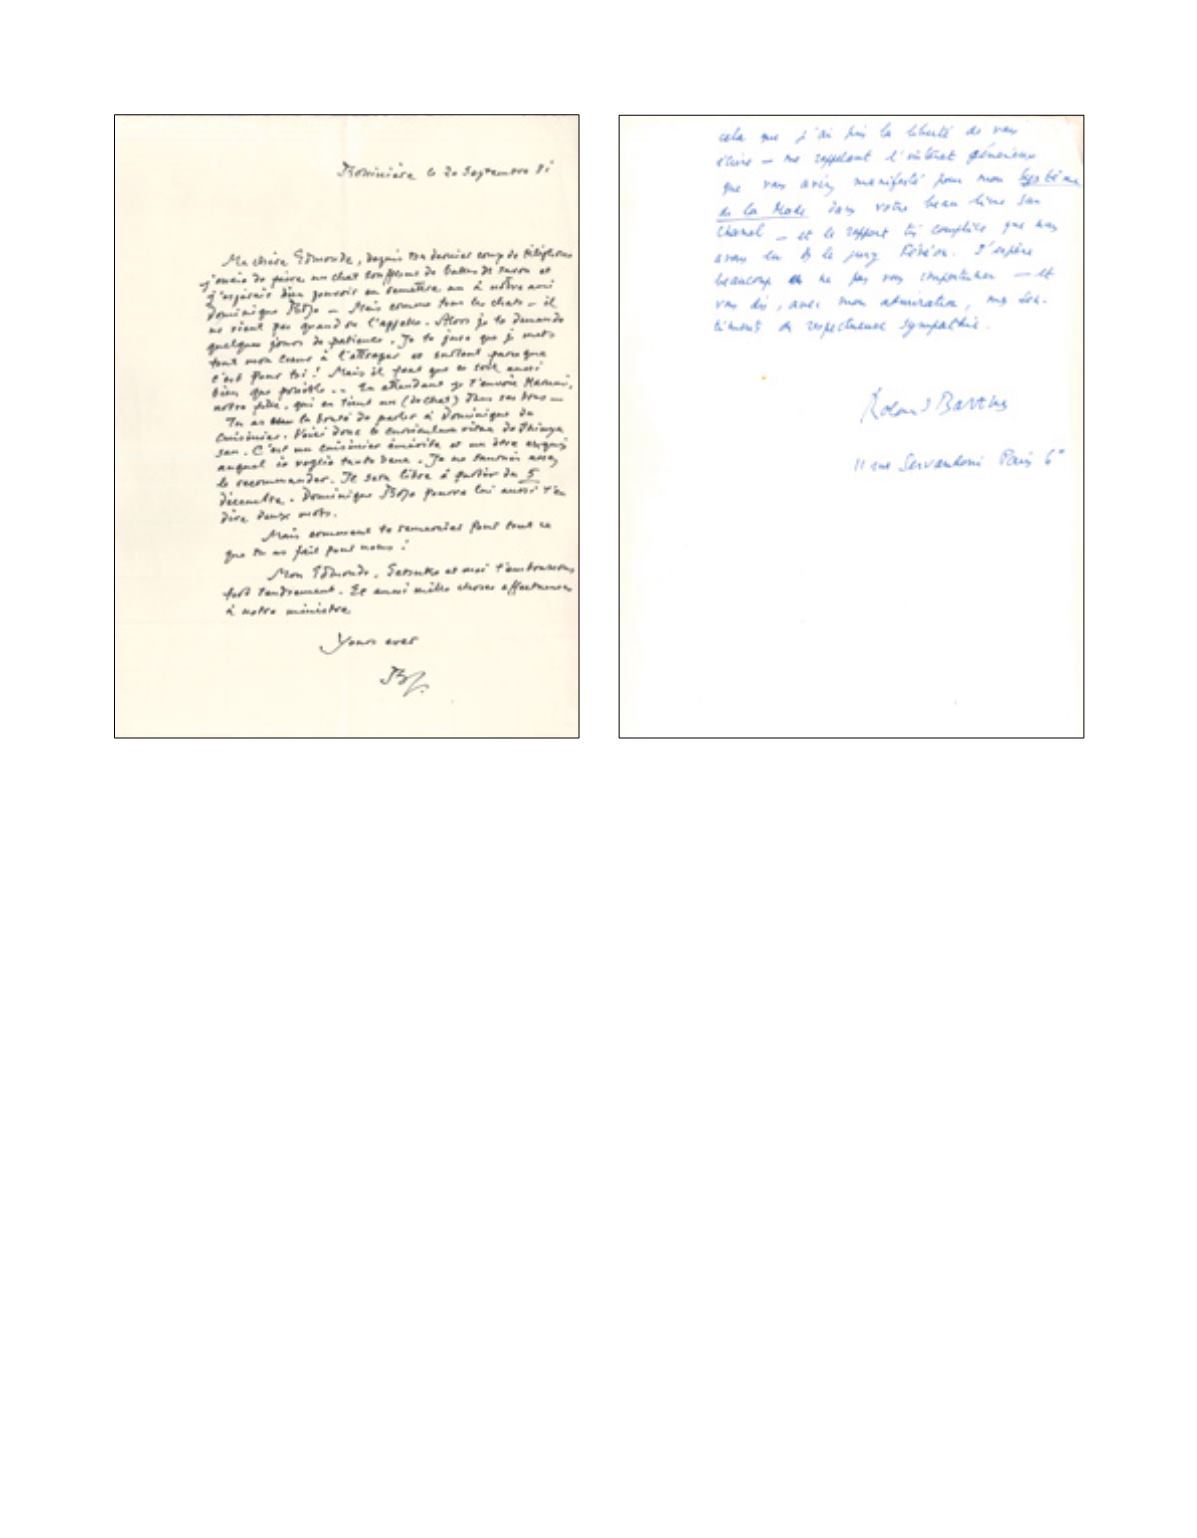 Rossinière le 20 Septembre 81
Ma chère Edmonde, depuis ton dernier coup de téléphone
j'essaie de faire un chat souffleur de bulles de savon et
j'espérais bien pouvoir en remettre un à notre ami
Dominique Bozo — Mais comme tous les chats — il
ne vient pas quand on l'appelle. Alors je te demande
quelques jours de patience. Je te jure que je mets
tout mon cœur à l'attraper et surtout parce que
c'est pour toi! Mais il faut que ce soit aussi
bien que possible.. En attendant je t'envoie Harumi,
notre fille, qui en tient un (de chat) dans ses bras —
Tu as eu la bonté de parler à Dominique du
cuisinier. Voici donc le curriculum vitae de
san. C'est un cuisinier émérite et un être exquis
auquel io voglio tanto bene. Je ne saurais assez
le recommander. Il sera libre à partir du 5
décembre. Dominique Bozo pourra lui aussi t'en
dire deux mots.
Mais comment te remercier pour tout ce
que tu as fait pour nous!
Mon Edmonde, Setsuko et moi t'embrassons
fort tendrement. Et aussi mille choses affectueuses
à notre ministre
Yours ever
B
cela que j'ai pris la liberté de vous
écrire — me rappelant l'intérêt généreux
que vous aviez manifesté pour mon Système
de la Mode dans votre beau livre sur
Chanel — et le rapport très complice que nous
avons eu ds le jury Fénéon. J'espère
beaucoup ne pas vous importuner — et
vous dis, avec mon admiration, mes sen-
timents de respectueuse sympathie.
Roland Barthes
11 rue Servandoni Paris 6e